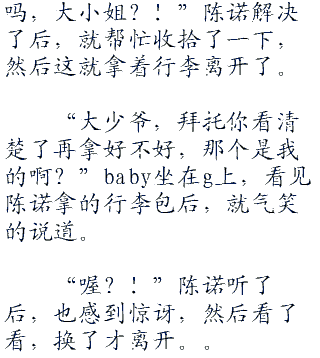 吗，大小姐？！”陈诺解决
了后，就帮忙收拾了一下，
然后这就拿着行李离开了。
“大少爷，拜托你看清
楚了再拿好不好，那个是我
的啊？”baby坐在g上，看见
陈诺拿的行李包后，就气笑
的说道。
“喔？！”陈诺听了
后，也感到惊讶，然后看了
看，换了才离开。。